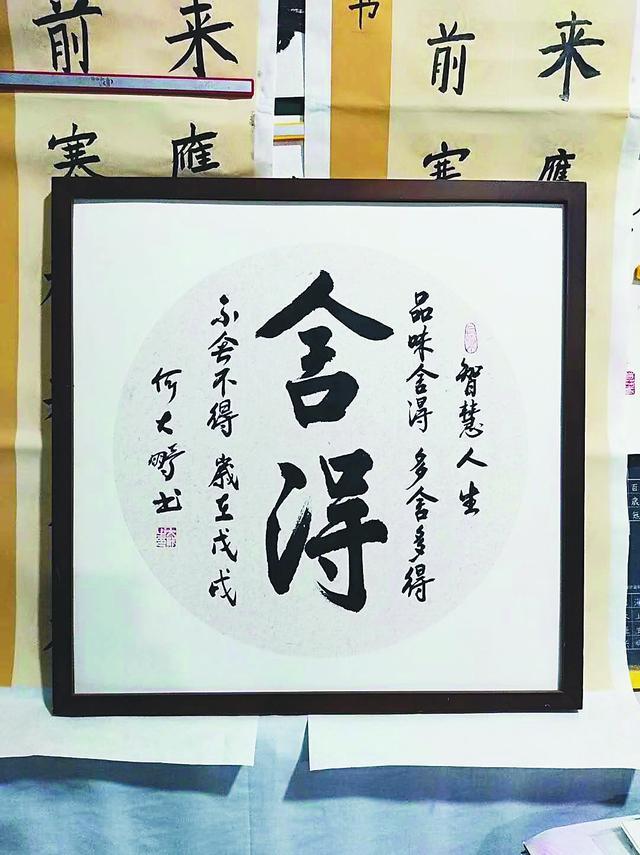 前 来
寒
书
前 来
寒
智慧人生
品味舍得 多舍多得
舍得
不舍不得 歲在戊戌
何大鹏书